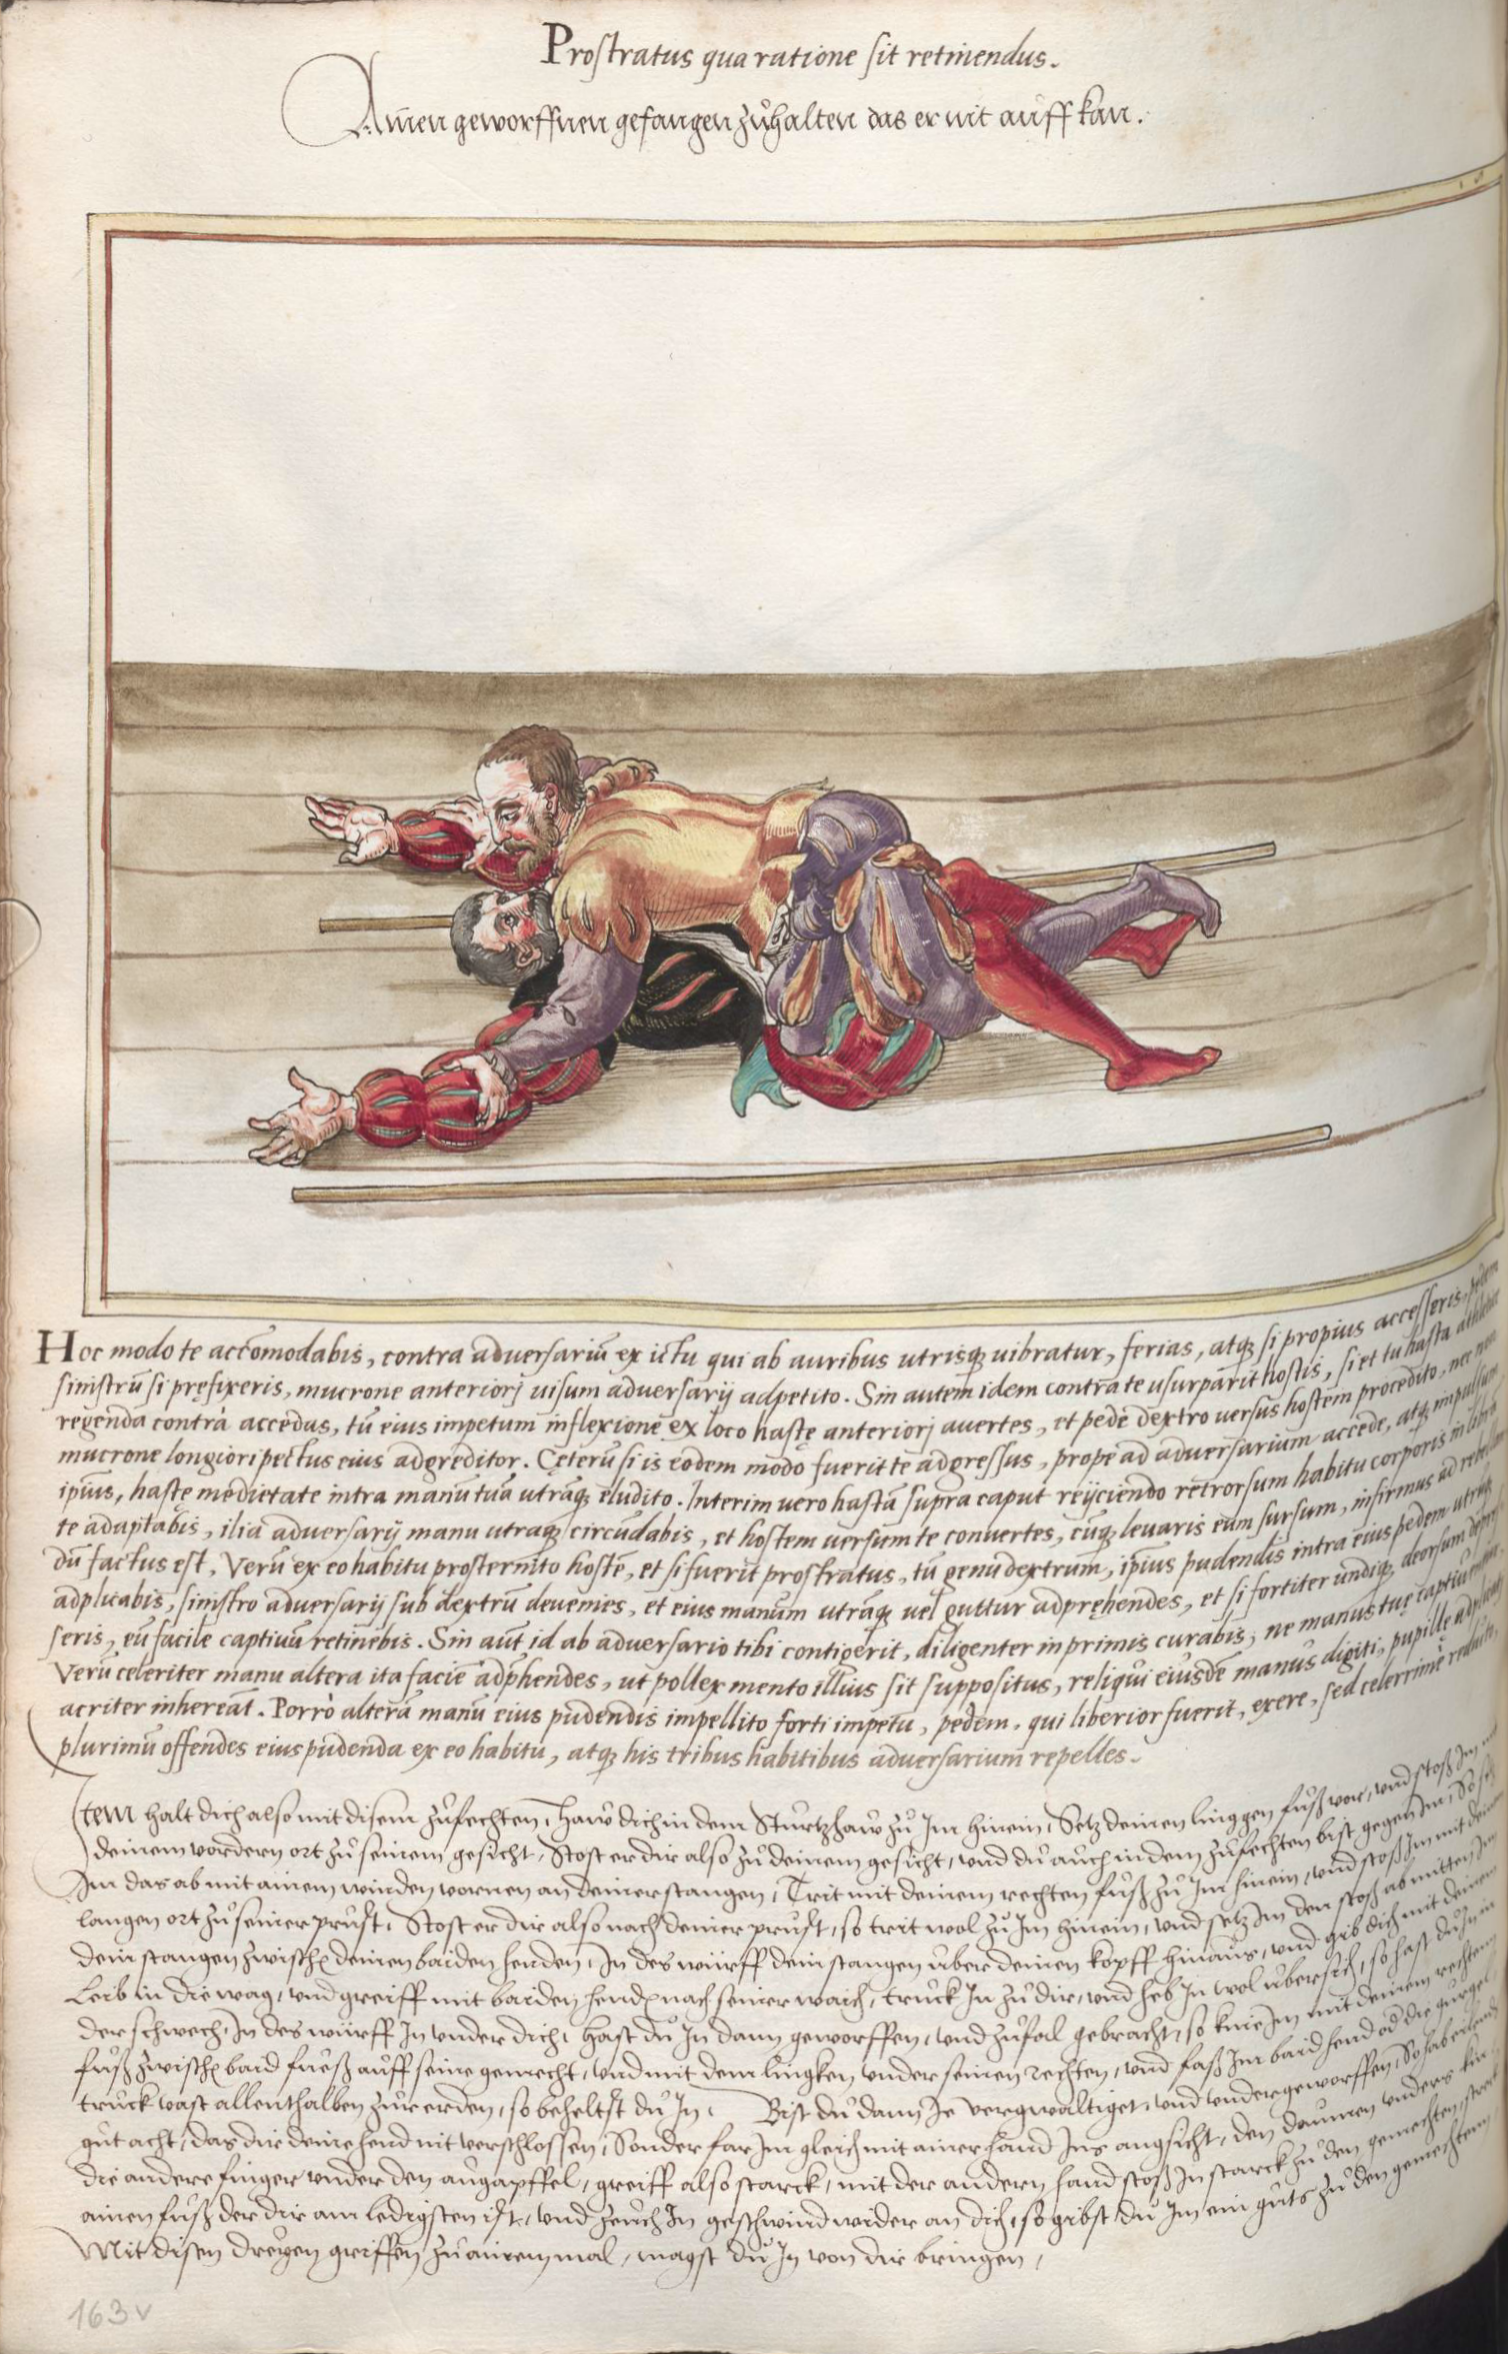 Prostratus qua ratione sit retinendus.
Ainen geworffnen gefangen zůhalten das er nit auff kan.
Hoc modo te accōmodabis, contra adversariū ex ictu qui ab auribus utrisq; vibratur, ferias, atq; si propius accesseris, pedem
sinistrū si pręfixeris, mucrone anteriorj visum adversarij adpetito. Sin autem idem contra te usurparit hostis, si et tu hasta
regenda contrà accedas, tū eius impetum inflexione ex loco hastę anteriorj avertes, et pede dextro versus hostem procedito, nec non
mucrone longiori pectus eius adgreditor. Cęterū si is eodem modo fuerit te adgressus, prope ad adversarium accede, atq; impulsum
ipsius, hastę medietate intra manū tuā utrāq; eludito. Interim vero hastā supra caput reijciendo retrorsum habitu corporis in librā
te adaptabis, ilia adversarij manu utraq; circūdabis, et hostem versum te convertes, cūq; levaris eum sursum, infirmus ad
dū factus est, Verū ex eo habitu prosternito hostē, et si fuerit prostratus, tū genu dextrum, ipsius pudendis intra eius pedem utrūq;
adplicabis, sinistro adversarij sub dextrū devenies, et eius manum utrāq; vel guttur adpręhendes, et si fortiter undiq; deorsum
seris, eū facile captivū retinebis. Sin aūt id ab adversario tibi contigerit, diligenter inprimis curabis, ne manus tuę
Verū celeriter manu altera ita faciē adphendes, ut pollex mento illius sit suppositus, reliqui eiusdē manus digiti, pupillę
acriter inhereāt. Porrò alterā manū eius pudendis impellito forti impetu, pedem, qui liberior fuerit, exere, sed celerrimè
plurimū offendes eius pudenda ex eo habitu, atq; his tribus habitibus adversarium repelles.
Item halt dich also mit disem zůfechten, Haw dich in dem Sturtzhaw zů Im hinein, Setz deinen linggen fůß vor, und stoß Im mit
deinem vordern ort zů seinem gesicht, Stost er dir also zů deinem gesicht, und du auch in dem zůfechten bist gegen Im, So setz
Im das ab mit ainem winden vornen an deiner stangen, Trit mit deinem rechten fůß zů Im hinein, und stoß Im mit deinem
langen ort zů seiner prust, Stost er dir also nach deiner prust, so trit wol zů Im hinein, und setz Im den stoß ab mitten Im
dein stangen zwischē deinen baiden henden, In des würff dein stangen uber deinen kopff hinaus, und gib dich mit deinem
Leib in die wag, und greiff mit baiden hendē nach seiner waich, truck In zů dir, und heb In wol ubersich, so hast du In in
der schwech, In des würff In under dich, Hast du In dann geworffen, und zůfal gebracht, so knie Im mit deinem rechten
fůß zwischē baid fueß auff seine gemecht, und mit dem lingken under seinen rechten, und faß Im baid hend od die gurgel
truck vast allenthalben zůr erden, so beheltst du In, Bist du dann Je vergwaltiget, und undergeworffen, So hab
gůt acht, das dir deine hend nit verschlossen, Sonder far Im gleich mit ainer hand Ins angsicht, den daumen unders kin
die andere finger under den augapffel, greiff also starck, mit der andern hand stoß In starck zů den gemechten, streck
ainen fůß der dir am ledigsten ist, und zeuch In geschwind wider an dich, so gibst du Im ein gůts zů den gemechten
Mit disen dreyen griffen zů ainem mal, magst du In von dir bringen,
163v